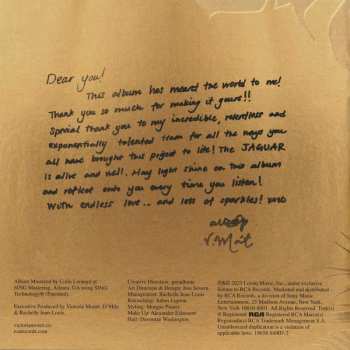 Dear you!
This album has meant the world to me!
Thank you so much for making it yours!!
Special thank you to my incredible, relentless and
exponentially talented team for all the ways you
all have brought this project to life! The JAGUAR
is alive and well. May light shine on this album
and reflect onto you every time you listen!
With endless love... and lots of sparkles! xo
V. Monét
Album Mastered by Colin Leonard at
SING Mastering, Atlanta, GA using SING
Technology® (Patented).
Executive Produced by Victoria Monét, D'Mile
& Rachelle Jean-Louis
victoriamonet.co
rcarecords.com
Creative Direction:
Art Direction & Design:
Management: Rachelle Jean-Louis
Styling:
Make Up: Alexander Echeverri
Hair: Davontaé Washington
℗&© 2023 Lovett Music, Inc., under exclusive
license to RCA Records. Marketed and distributed
by RCA Records, a division of Sony Music
Entertainment, 25 Madison Avenue, New York,
NY 10010-8601. All Rights Reserved.
RCA
Registrada(s) RCA Trademark Management S.A.
Unauthorized duplication is a violation of
applicable laws.